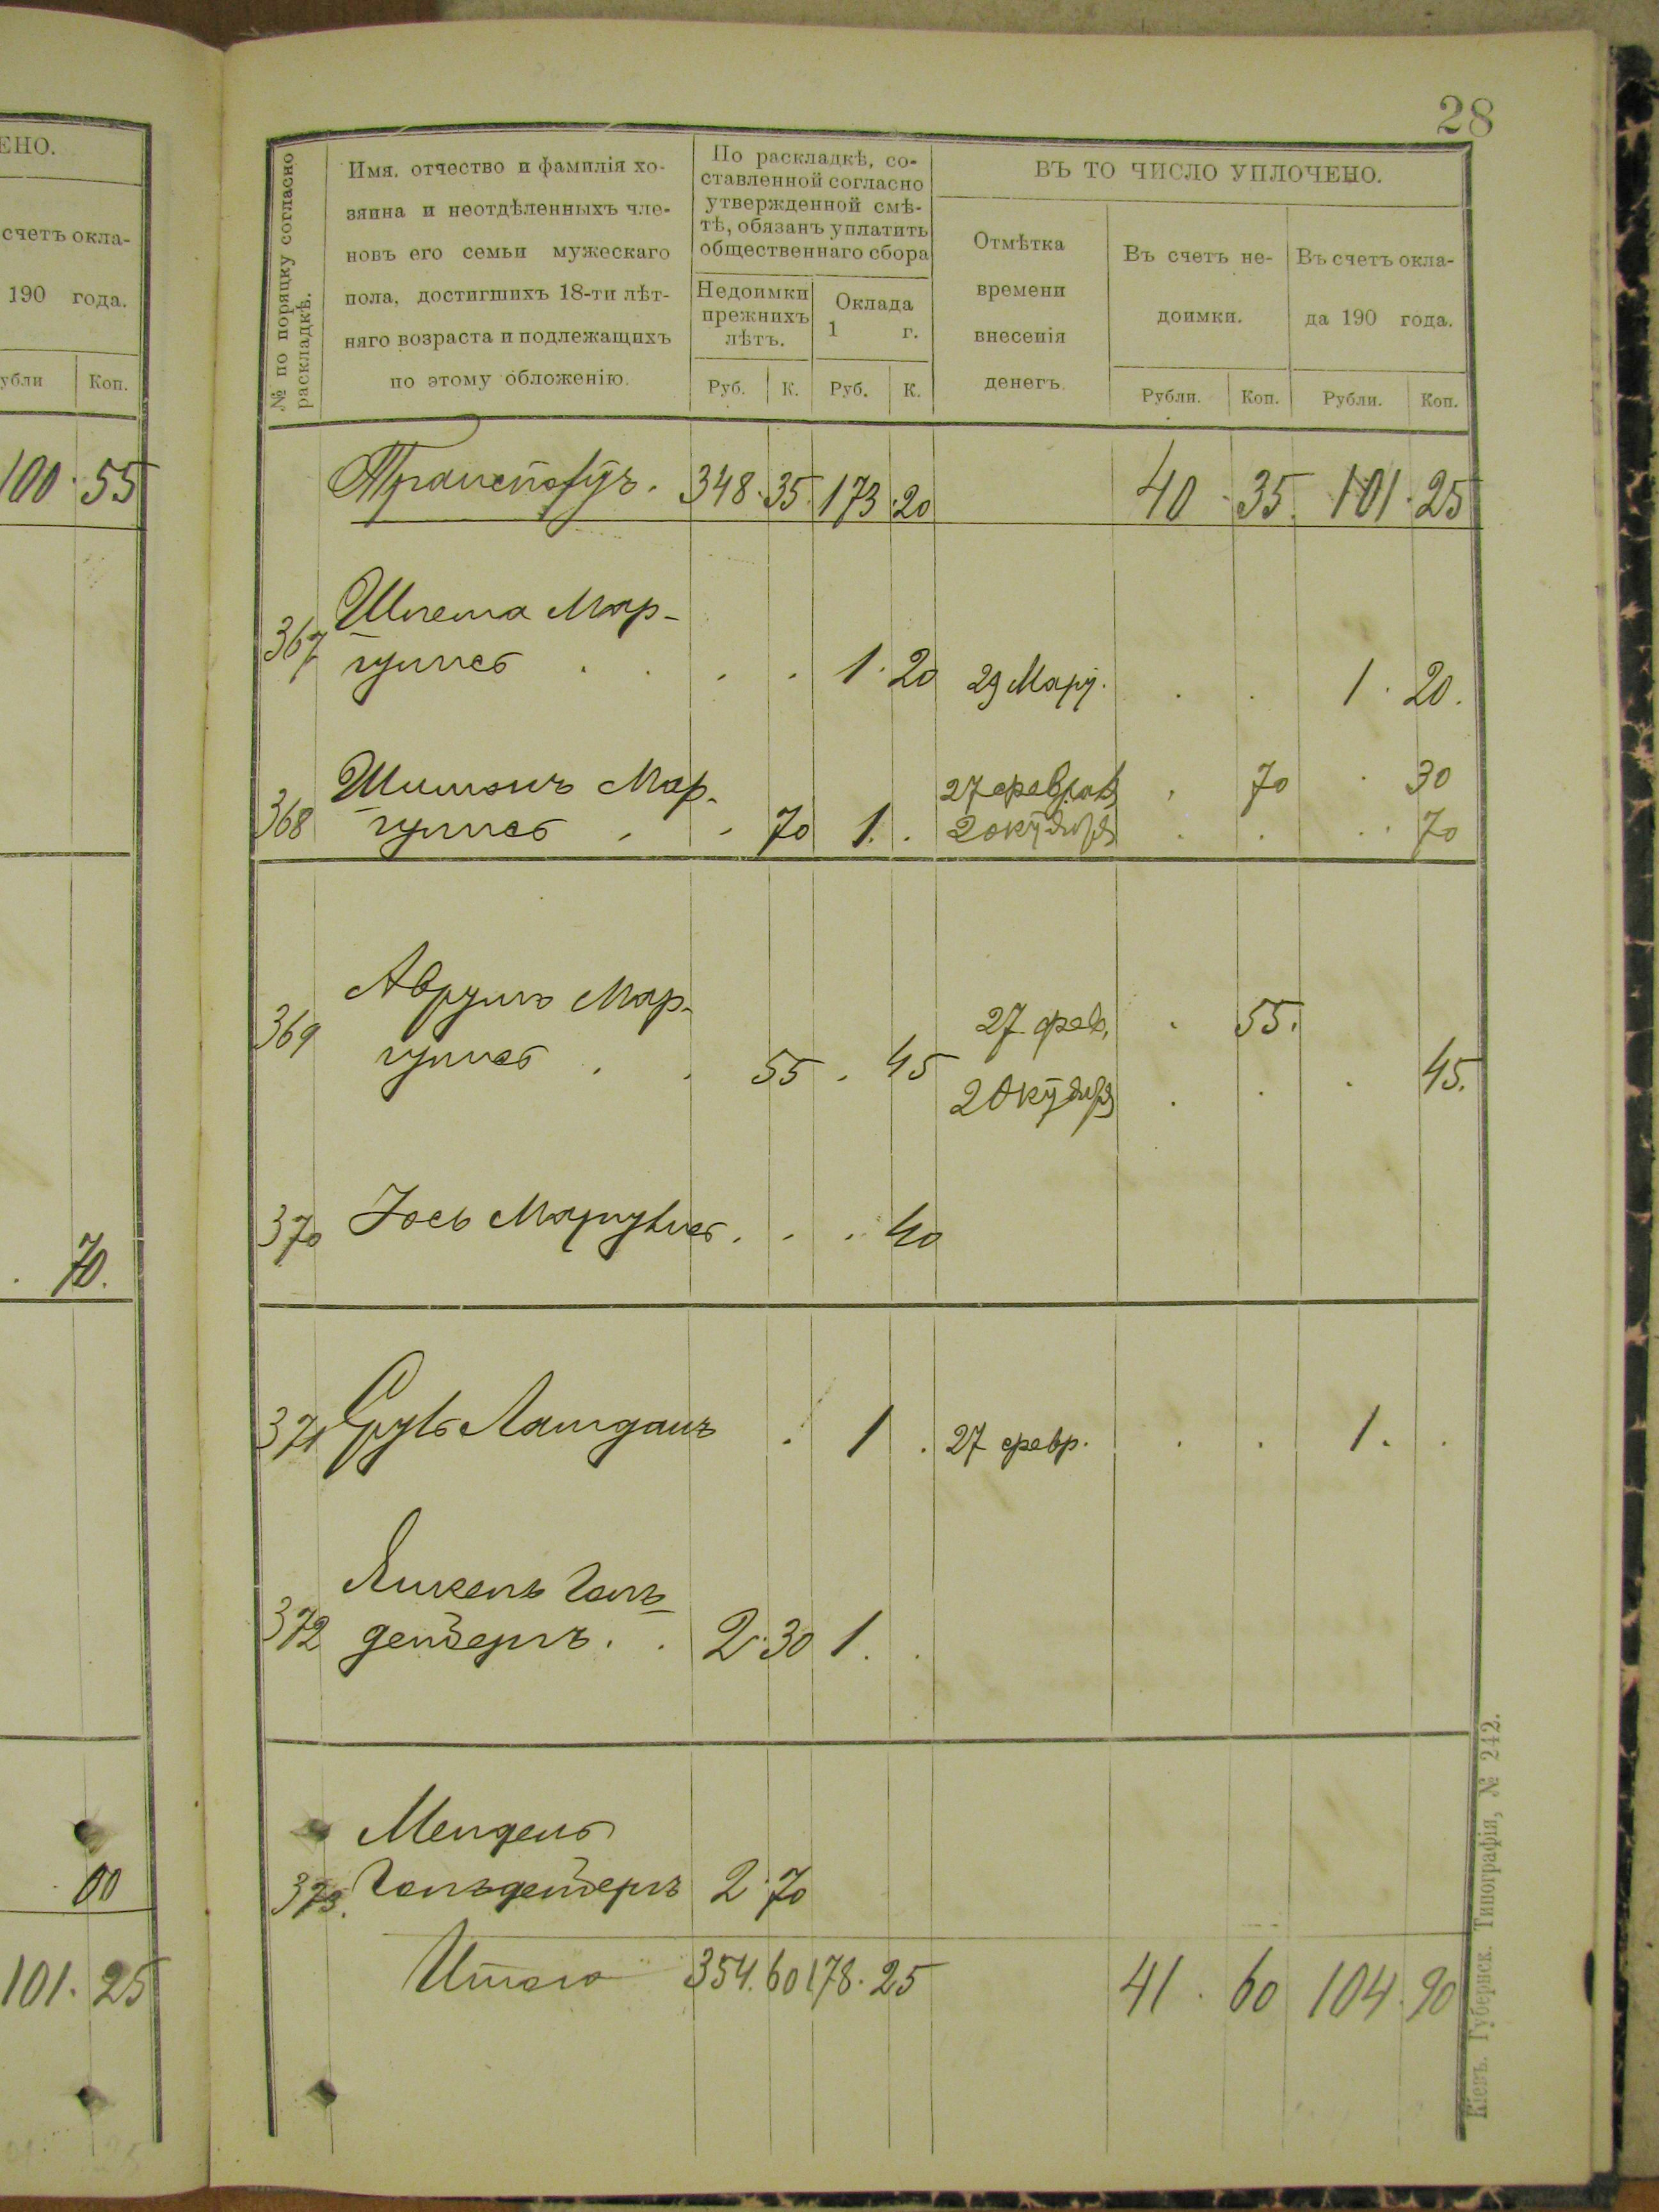 ЕНО.
счетъ окла-
190 года.
убли Коп.
100 · 55
. 70.
. 00
101. 25
28
№ по поряцку согласно
раскладкѣ.
Имя. отчество и фамилія хо-
зяина и неотдѣленныхъ чле-
новъ его семьи мужескаго
пола, достигшихъ 18-ти лѣт-
няго возраста и подлежащихъ
по этому обложенію.
По раскладкѣ, со-
ставленной согласно
утвержденной смѣ-
тѣ, обязанъ уплатить
общественнаго сбора
Недоимки
прежнихъ
лѣтъ.
Оклада
1 г.
Руб. К. Руб. К.
ВЪ ТО ЧИСЛО УПЛОЧЕНО.
Отмѣтка
времени
внесенія
денегъ.
Въ счетъ не-
доимки.
Въ счетъ окла-
да 190 года.
Рубли. Коп. Рубли. Коп.
Транспортъ. 348. 35. 173. 20 40 . 35. 101. 25
Шлема Мар-
367 гулисъ . . . . 1. 20 29 Март. . . 1 . 20.
Шимонъ Мар- 27 феврал , 70 . 30
368 гулисъ . . 70 1. . 2 октября . . . . 70
Аврумъ Мар- 27 фев. . 55.
369 гулисъ . . 55 . 45 2 Октября . . . 45.
370 Іось Маргулисъ . . . 40
371 Сруль Ланданъ . 1 . 27 февр. . . 1. .
ЯнкельГоль-
372 денбергъ. . 2. 30 1. .
Мендель
373. Гольденбергъ 2. 70
Итого 354. 60 178. 25 41 . 60 104. 90
Кіевъ. Губернск. Типографія, № 242.